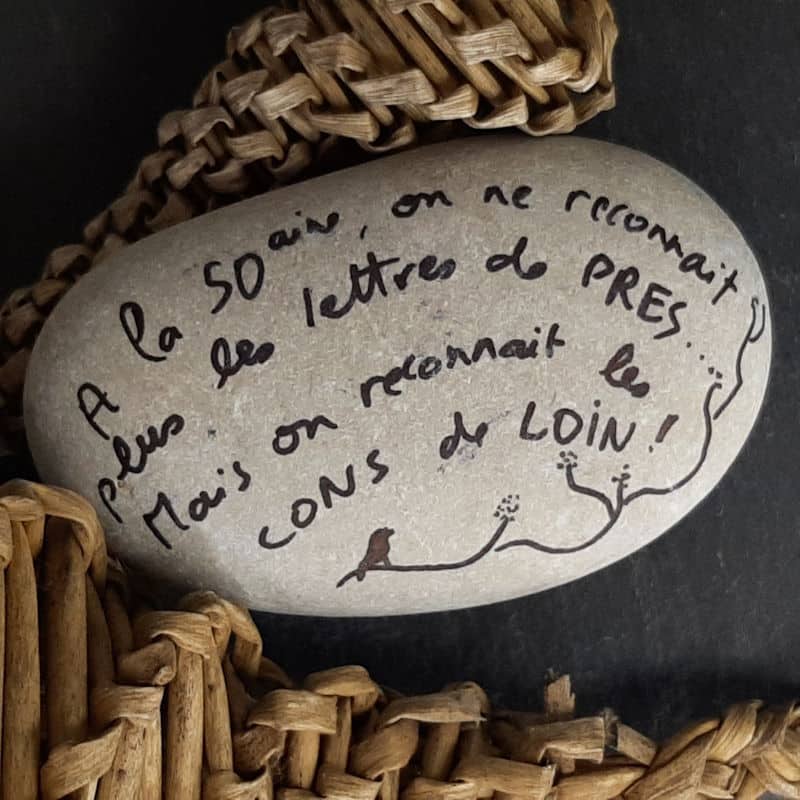 A la 50aine, on ne reconnait
plus les lettres de PRES...
Mais on reconnait les
CONS de LOIN !